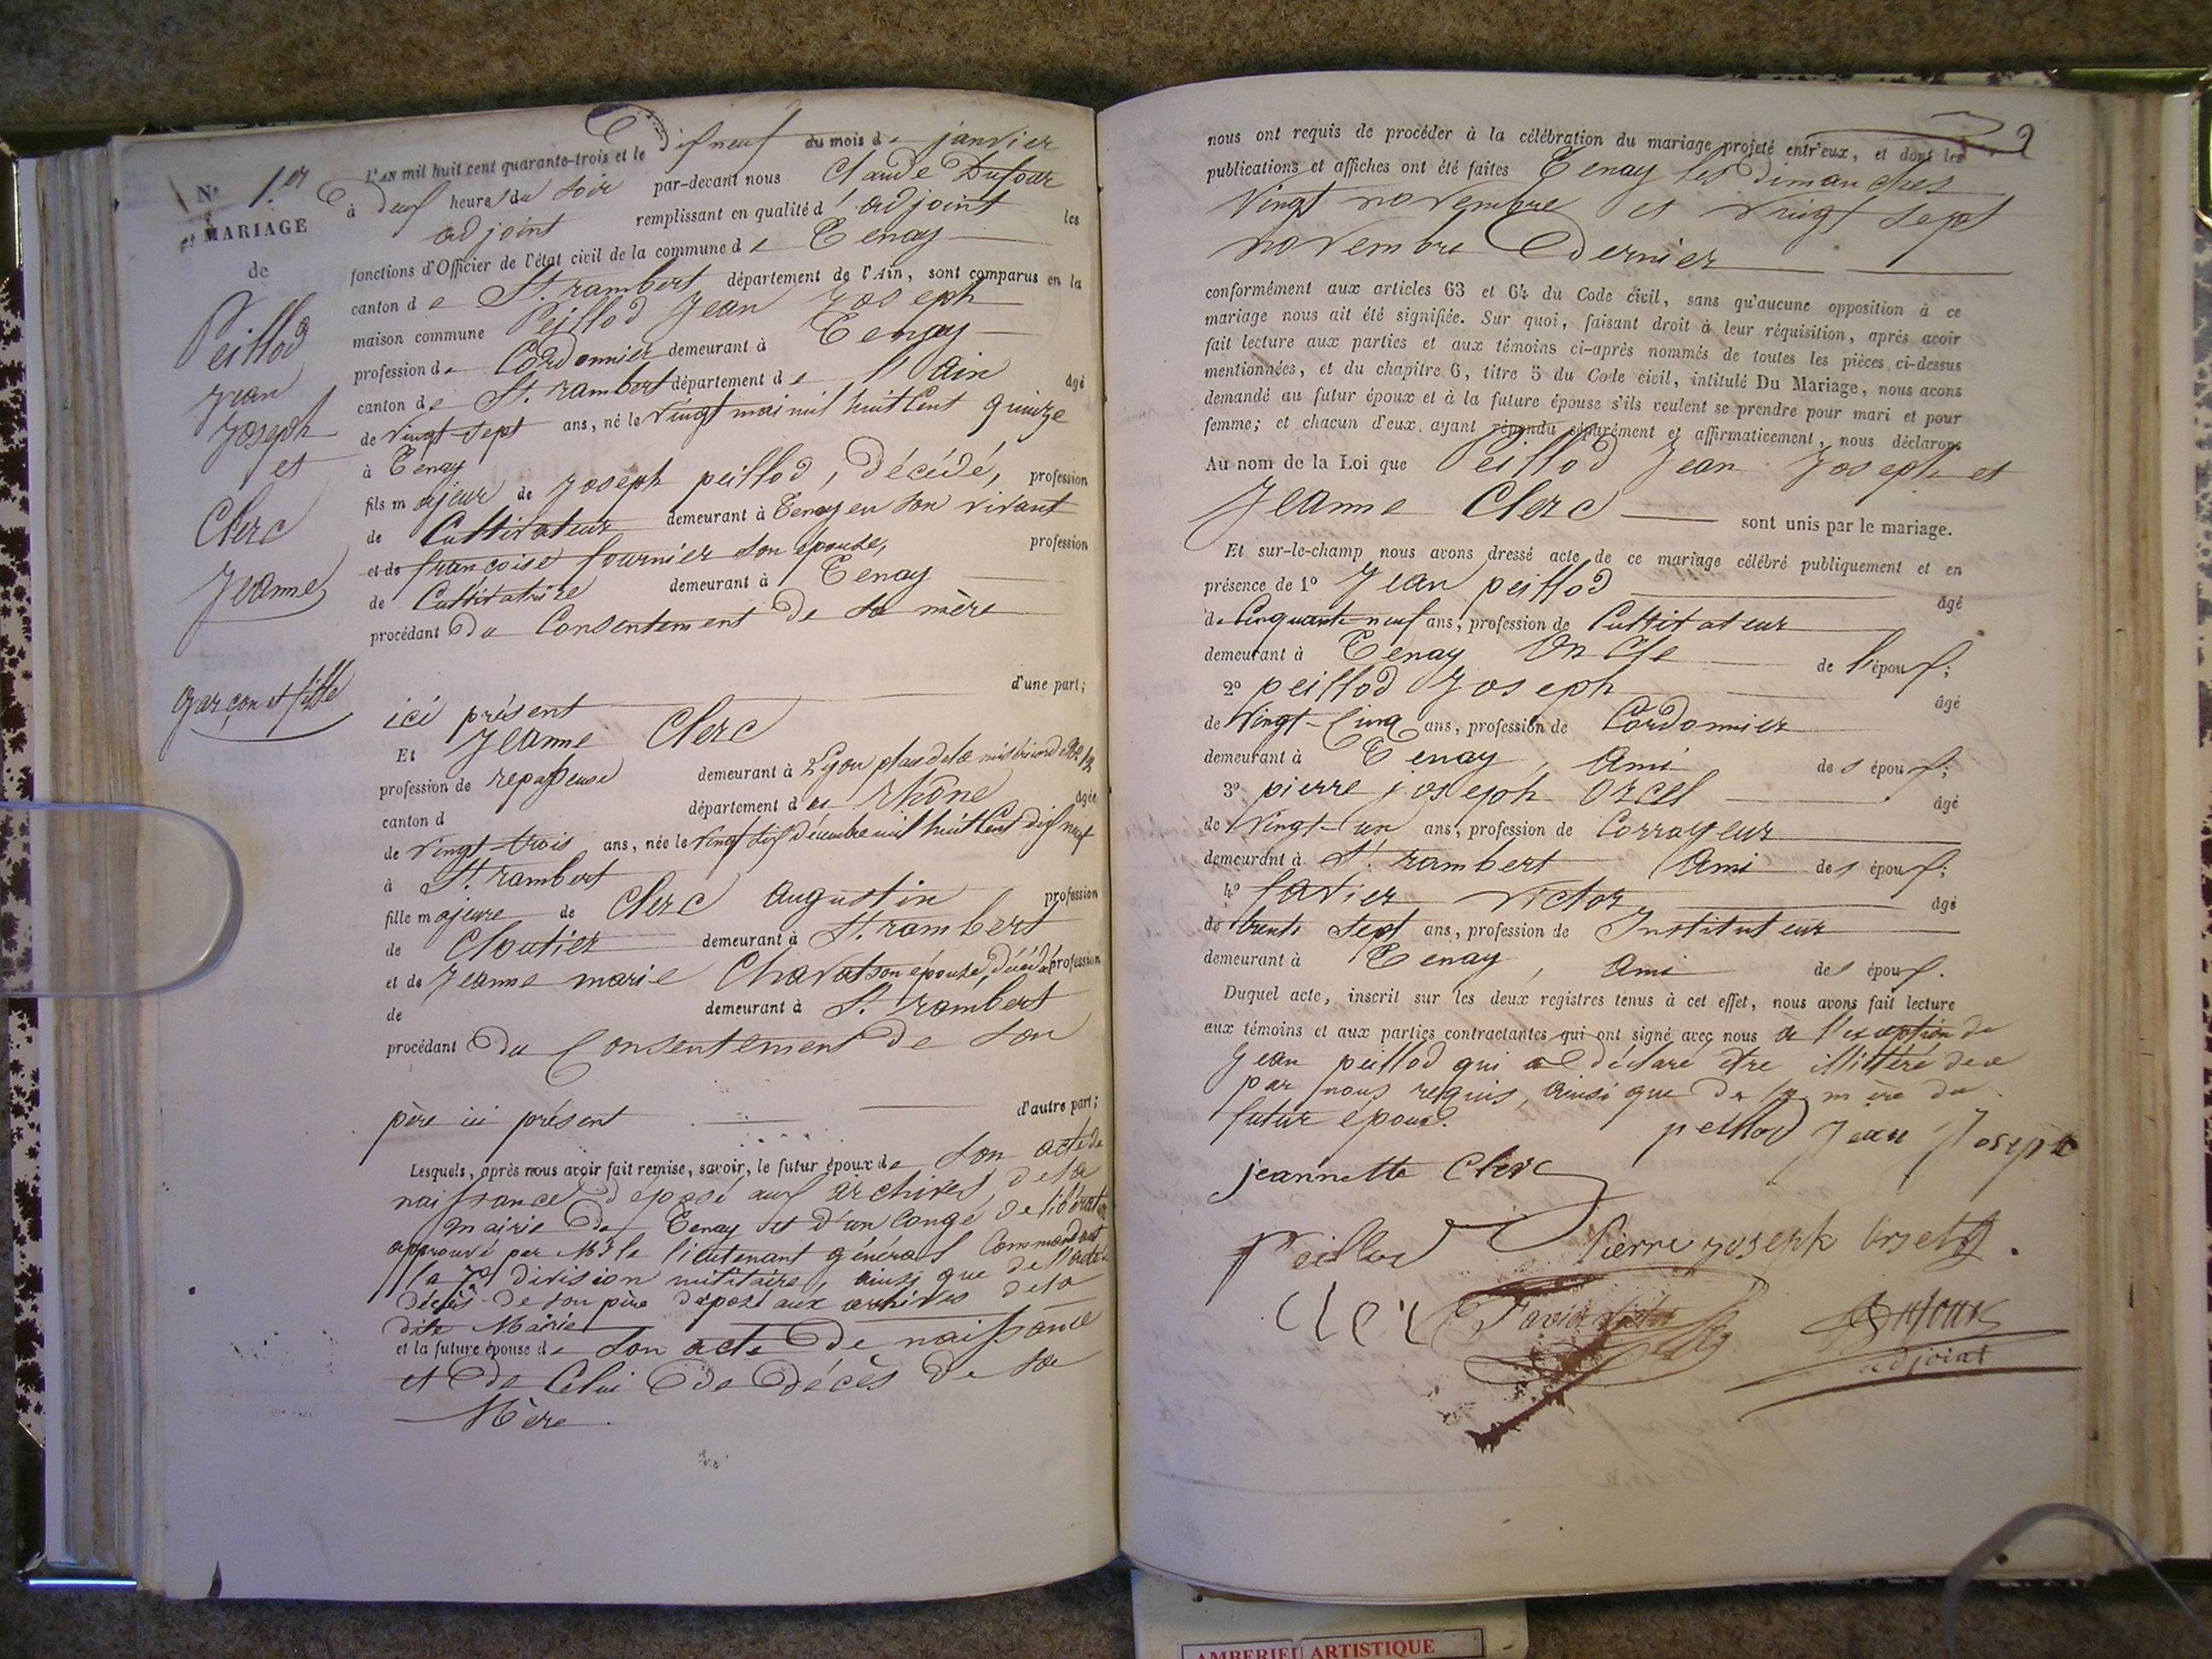 N° 1.er
MARIAGE
de
Peillod
jean
joseph
et
Clerc
Jeanne
garçon et fille
L'AN mil huit cent quarante-trois et le dixneuf du mois de janvier
à deux heures du soir par-devant nous Claude Dufour
adjoint remplissant en qualité d'adjoint les
fonctions d'Officier de l'état civil de la commune de Tenay
canton de St. rambert département de l'Ain, sont comparus en la
maison commune Peillod Jean Joseph
profession de Cordonnier demeurant à Tenay
canton de St. rambert département de l'Ain âgé
de vingt-sept ans, né le vingt mai mil huit cent quinze
à Tenay
fils majeur de joseph peillod, décédé, profession
de Cultivateur demeurant à Tenay en son vivant
et de françoise fournier son épouse, profession
de Cultivatrice demeurant à Tenay
procédant du Consentement de sa mère
ici présent d'une part;
Et Jeanne Clerc
profession de repasseuse demeurant à Lyon place de la miséricorde No. 12
canton d département du rhône âgée
de vingt-trois ans, née le vingt six décembre mil huit cent dix neuf
à St. rambert
fille majeure de Clerc augustin profession
de Cloutier demeurant à St. rambert
et de Jeanne marie Chavat son épouse, décédée profession
de demeurant à St. rambert
procédant du Consentement de son
père ici présent d'autre part;
Lesquels, après nous avoir fait remise, savoir, le futur époux de son acte de
naissance déposé aux archives de la
mairie de Tenay et d'un congé de libération
approuvé par Mr le lieutenant général Commandant
la 7e division militaire, ainsi que de l'acte de
décès de son père déposé aux archives de la
dite Mairie
et la future épouse de son acte de naissance
et de Celui de décès de sa
Mère.
2
nous ont requis de procéder à la célébration du mariage projeté entr'eux, et dont les
publications et affiches ont été faites Tenay les dimanches
Vingt novembre et vingt sept
novembre dernier
conformément aux articles 63 et 64 du Code civil, sans qu'aucune opposition à ce
mariage nous ait été signifiée. Sur quoi, faisant droit à leur réquisition, après avoir
fait lecture aux parties et aux témoins ci-après nommés de toutes les pièces ci-dessus
mentionnées, et du chapitre 6, titre 5 du Code civil, intitulé Du Mariage, nous avons
demandé au futur époux et à la future épouse s'ils veulent se prendre pour mari et pour
femme; et chacun d'eux ayant répondu séparément et affirmativement, nous déclarons
Au nom de la Loi que Peillod Jean Joseph et
Jeanne Clerc sont unis par le mariage.
Et sur-le-champ nous avons dressé acte de ce mariage célébré publiquement et en
présence de 1° Jean peillod âgé
de Cinquante-neuf ans, profession de Cultivateur
demeurant à Tenay Oncle de l'époux;
2° peillod Joseph âgé
de Vingt-Cinq ans, profession de Cordonnier
demeurant à Tenay, Ami des époux;
3° pierre joseph Orcel âgé
de Vingt-un ans, profession de Corrayeur
demeurant à St. rambert Ami des époux;
4° favier Victor âgé
de trente sept ans, profession de Instituteur
demeurant à Tenay, Ami des époux.
Duquel acte, inscrit sur les deux registres tenus à cet effet, nous avons fait lecture
aux témoins et aux parties contractantes qui ont signé avec nous à l'exception de
Jean peillod qui a déclaré être illittéré de ce
par nous requis, ainsi que de la mère du
futur époux.
peillod Jean Joseph
jeannette Clerc
Peillod Pierre joseph Orsel
Clerc Favier Victor Dufour
adjoint
AMBERIEU ARTISTIQUE